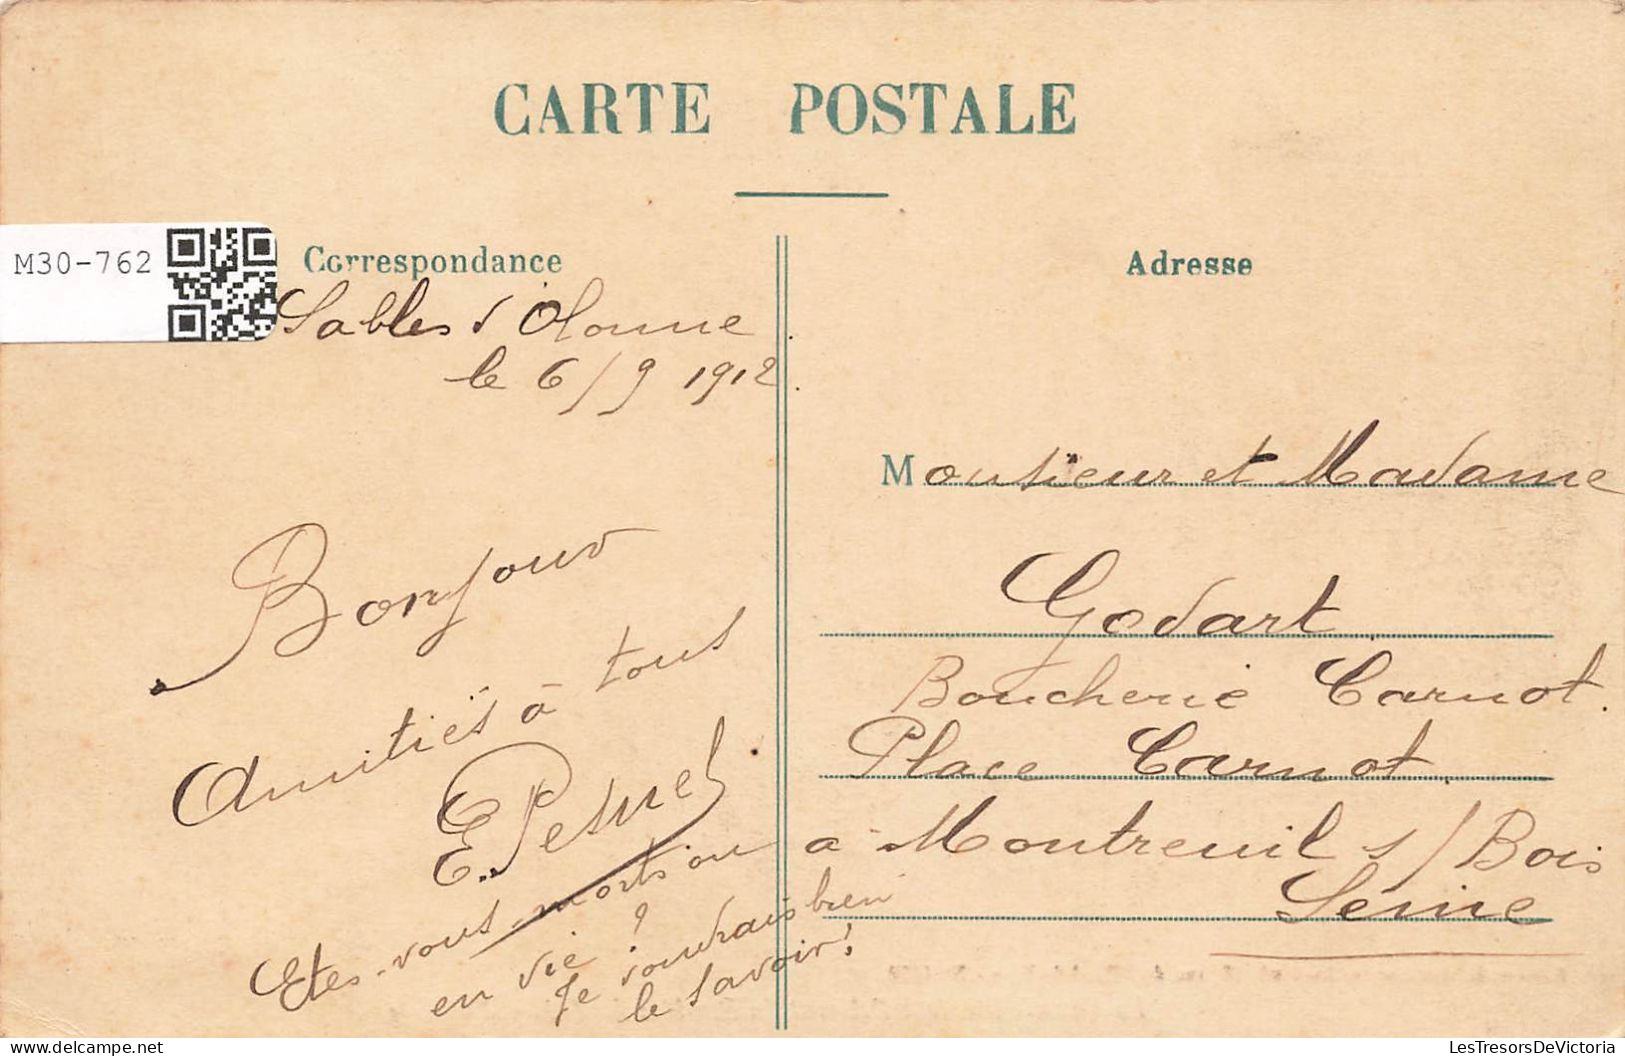 CARTE POSTALE
M30-762
Correspondance
Sables d'Olonne
le 6/9 1912.
Bonjour
Amitiés à tous
E. Pesnel
Etes-vous morts ou
en vie ?
Je voudrais bien
le savoir !
Adresse
Monsieur et Madame
Godart
Boucherie Carnot.
Place Carnot.
à Montreuil s/Bois
Seine
LesTresorsDeVictoria